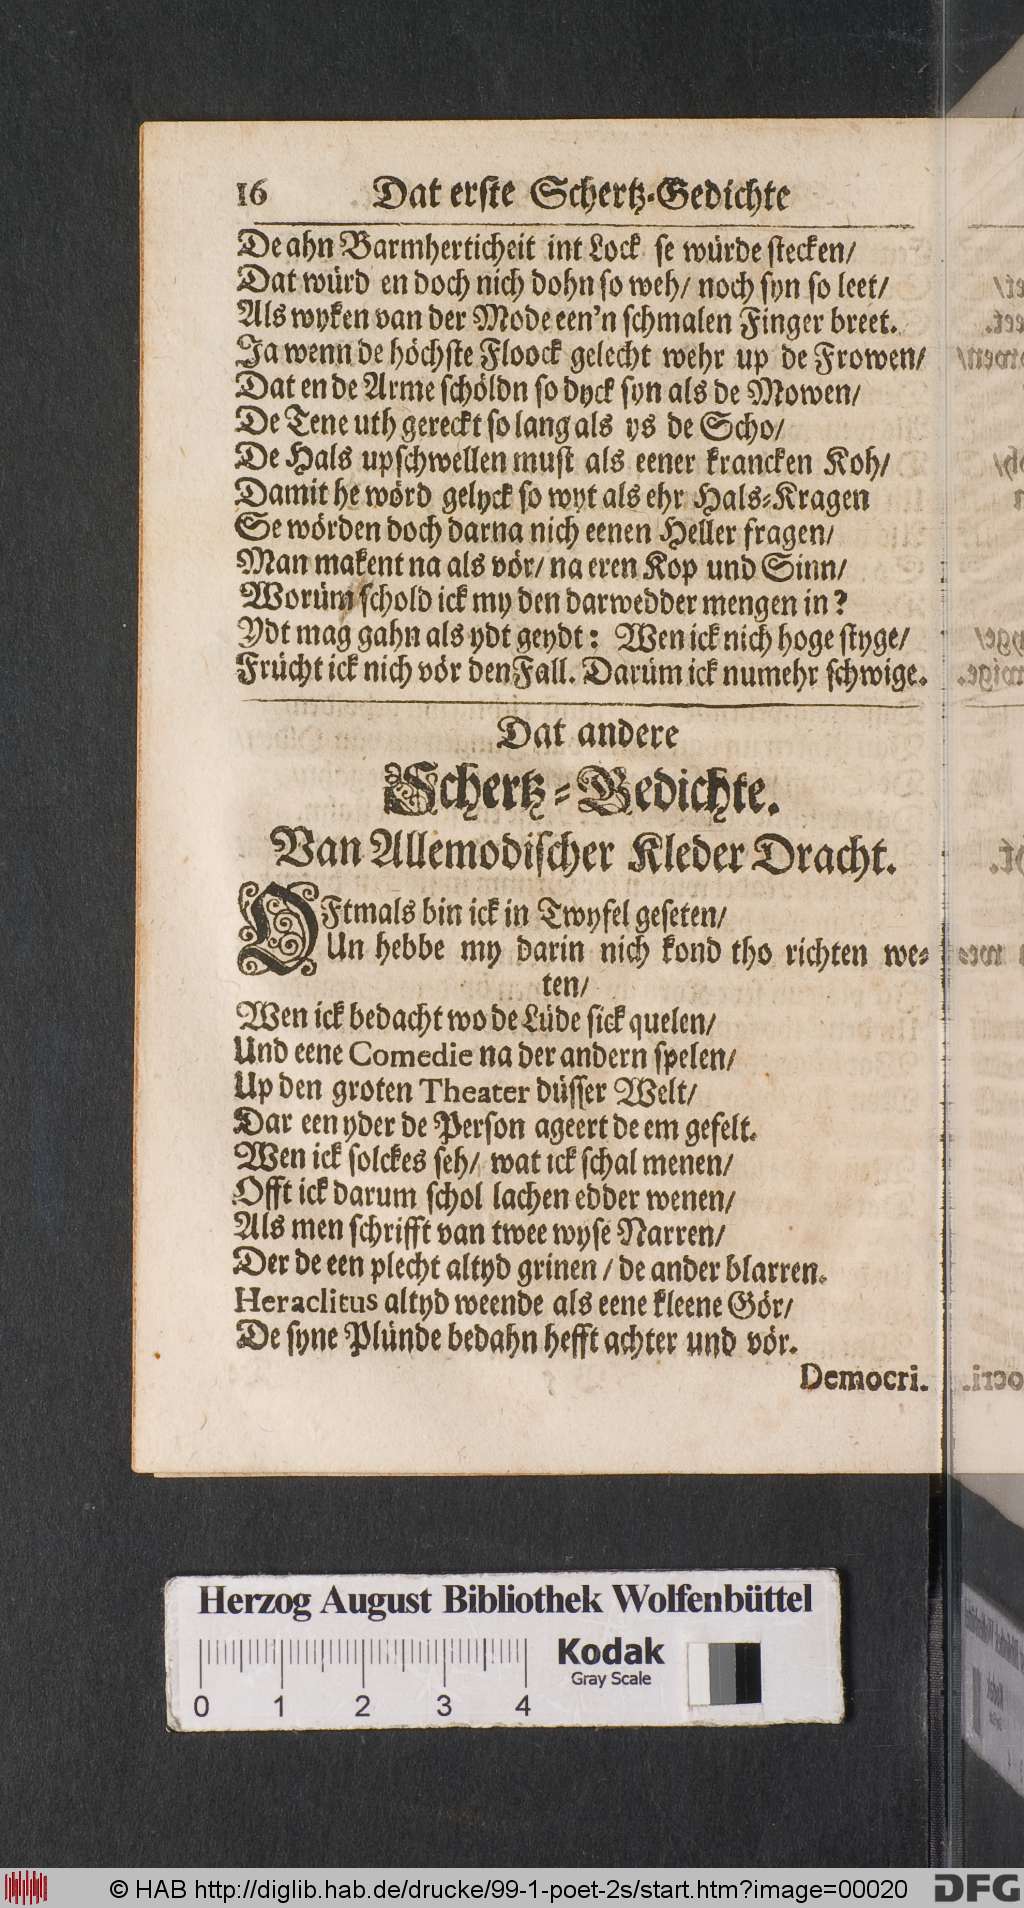 16 Dat erste Schertz-Gedichte
De ahn Barmherticheit int Lock se würde stecken/
Dat würd en doch nich dohn so weh/ noch syn so leet/
Als wyken van der Mode een'n schmalen Finger breet.
Ja wenn de höchste Floock gelecht wehr up de Frowen/
Dat en de Arme schöldn so dyck syn als de Mowen/
De Tene uth gereckt so lang als ys de Scho/
De Hals upschwellen must als eener krancken Koh/
Damit he wörd gelyck so wyt als ehr Hals-Kragen
Se wörden doch darna nich eenen Heller fragen/
Man makent na als vör/ na eren Kop und Sinn/
Worüm schold ick my den darwedder mengen in?
Ydt mag gahn als ydt geydt: Wen ick nich hoge styge/
Frücht ick nich vör den Fall. Darüm ick numehr schwige.
Dat andere
Schertz-Gedichte.
Van Allemodischer Kleder Dracht.
OFtmals bin ick in Twyfel geseten/
Un hebbe my darin nich kond tho richten we-
ten/
Wen ick bedacht wo de Lüde sick quelen/
Und eene Comedie na der andern spelen/
Up den groten Theater düsser Welt/
Dar een yder de Person ageert de em gefelt.
Wen ick solckes seh/ wat ick schal menen/
Offt ick darum schol lachen edder wenen/
Als men schrifft van twee wyse Narren/
Der de een plecht altyd grinen/ de ander blarren.
Heraclitus altyd weende als eene kleene Gör/
De syne Plünde bedahn hefft achter und vör.
Democri.
Herzog August Bibliothek Wolfenbüttel
Kodak
Gray Scale
0 1 2 3 4
© HAB http://diglib.hab.de/drucke/99-1-poet-2s/start.htm?image=00020
DFG